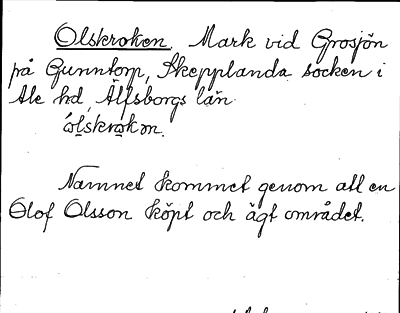 Olskroken. Mark vid Grosjön
på Gunntorp, Skepplanda socken i
Ale hd, Älfsborgs län
ólskrókən.
Namnet kommet genom att en
Olof Olsson köpt och ägt området.